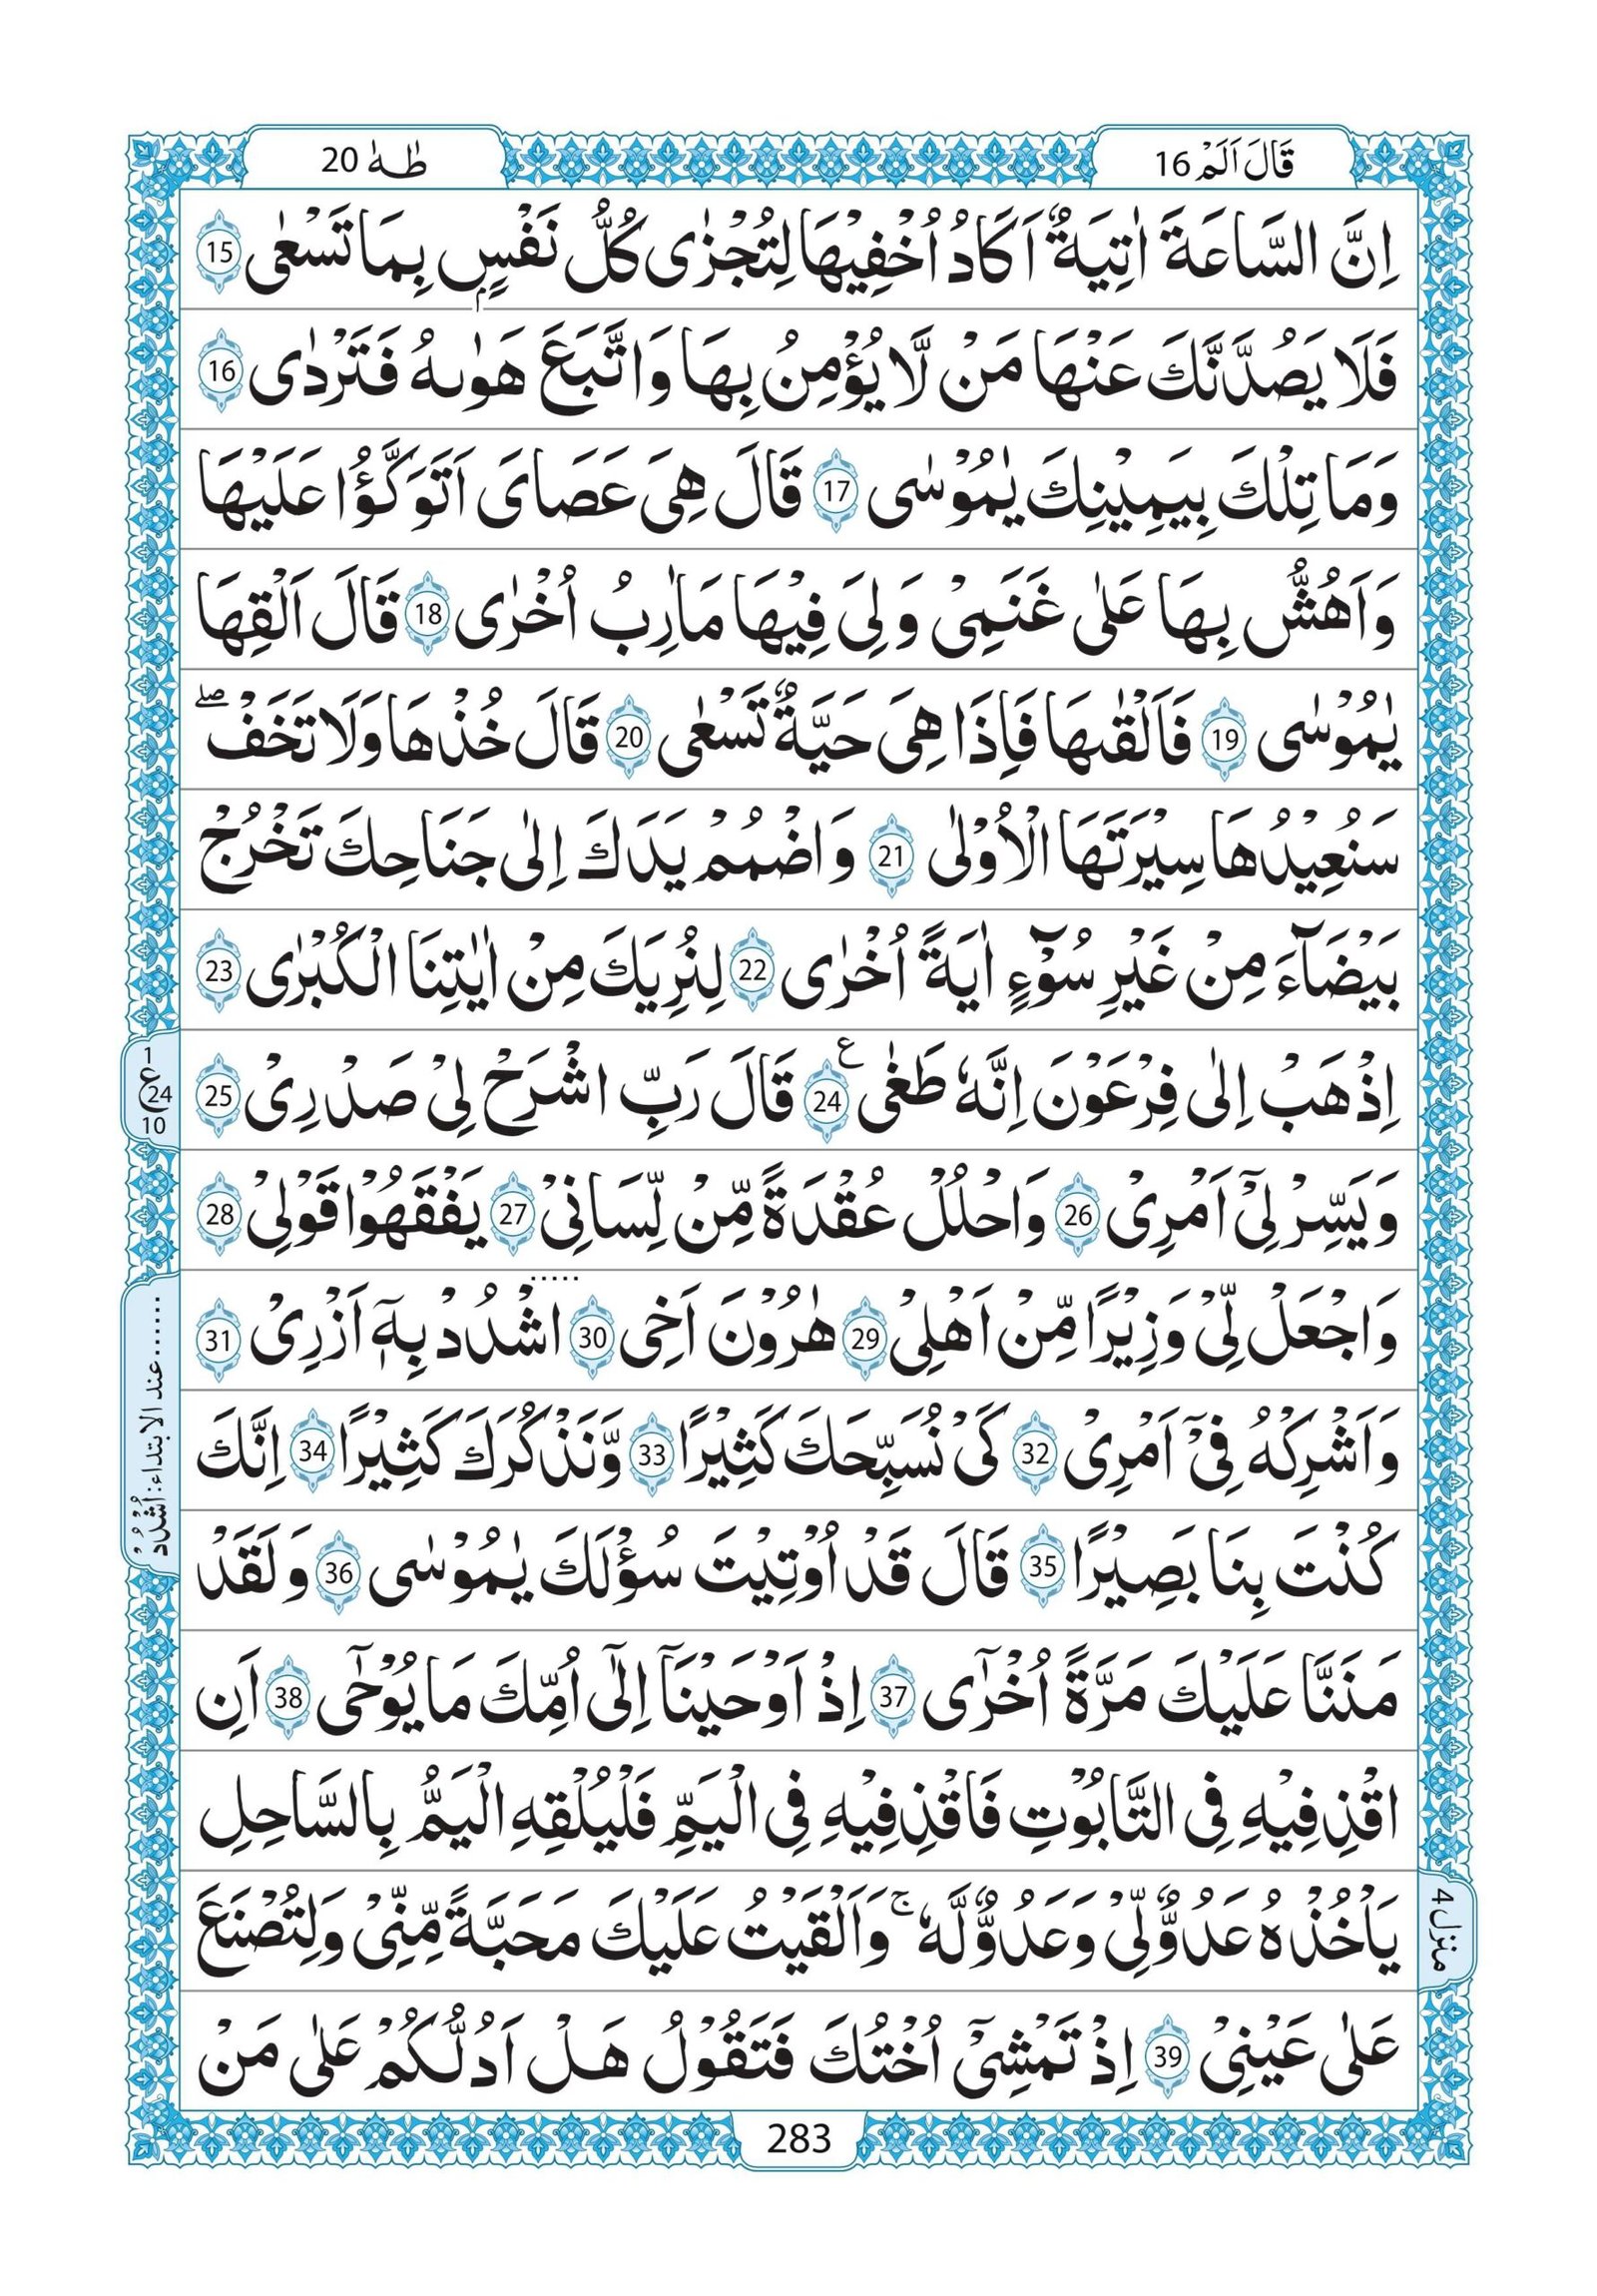 قَالَ اَلَمْ 16
طٰهٰ 20
اِنَّ السَّاعَةَ اٰتِيَةٌ اَكَادُ اُخْفِيْهَا لِتُجْزٰى كُلُّ نَفْسٍۭ بِمَا تَسْعٰى 15
فَلَا يَصُدَّنَّكَ عَنْهَا مَنْ لَّا يُؤْمِنُ بِهَا وَاتَّبَعَ هَوٰىهُ فَتَرْدٰى 16
وَمَا تِلْكَ بِيَمِيْنِكَ يٰمُوْسٰى 17 قَالَ هِىَ عَصَاىَ اَتَوَكَّؤُا عَلَيْهَا
وَاَهُشُّ بِهَا عَلٰى غَنَمِىْ وَلِىَ فِيْهَا مَاٰرِبُ اُخْرٰى 18 قَالَ اَلْقِهَا
يٰمُوْسٰى 19 فَاَلْقٰىهَا فَاِذَا هِىَ حَيَّةٌ تَسْعٰى 20 قَالَ خُذْهَا وَلَا تَخَفْ ۖ
سَنُعِيْدُهَا سِيْرَتَهَا الْاُوْلٰى 21 وَاضْمُمْ يَدَكَ اِلٰى جَنَاحِكَ تَخْرُجْ
بَيْضَآءَ مِنْ غَيْرِ سُوْٓءٍ اٰيَةً اُخْرٰى 22 لِنُرِيَكَ مِنْ اٰيٰتِنَا الْكُبْرٰى 23
اِذْهَبْ اِلٰى فِرْعَوْنَ اِنَّهٗ طَغٰى ع 24 قَالَ رَبِّ اشْرَحْ لِىْ صَدْرِىْ 25
1
ع 24
10
وَيَسِّرْ لِىْٓ اَمْرِىْ 26 وَاحْلُلْ عُقْدَةً مِّنْ لِّسَانِىْ 27 يَفْقَهُوْا قَوْلِىْ 28
وَاجْعَلْ لِّىْ وَزِيْرًا مِّنْ اَهْلِىْ 29 هٰرُوْنَ اَخِى 30 اشْدُدْ بِهٖٓ اَزْرِىْ 31
......عند الابتداء: اُشْدُدْ
وَاَشْرِكْهُ فِىْٓ اَمْرِىْ 32 كَىْ نُسَبِّحَكَ كَثِيْرًا 33 وَّنَذْكُرَكَ كَثِيْرًا 34 اِنَّكَ
كُنْتَ بِنَا بَصِيْرًا 35 قَالَ قَدْ اُوْتِيْتَ سُؤْلَكَ يٰمُوْسٰى 36 وَلَقَدْ
مَنَنَّا عَلَيْكَ مَرَّةً اُخْرٰٓى 37 اِذْ اَوْحَيْنَآ اِلٰٓى اُمِّكَ مَا يُوْحٰٓى 38 اَنِ
اقْذِفِيْهِ فِى التَّابُوْتِ فَاقْذِفِيْهِ فِى الْيَمِّ فَلْيُلْقِهِ الْيَمُّ بِالسَّاحِلِ
يَاْخُذْهُ عَدُوٌّ لِّىْ وَعَدُوٌّ لَّهٗ ۚ وَاَلْقَيْتُ عَلَيْكَ مَحَبَّةً مِّنِّىْ وَلِتُصْنَعَ
منزل 4
عَلٰى عَيْنِىْ 39 اِذْ تَمْشِىْٓ اُخْتُكَ فَتَقُوْلُ هَلْ اَدُلُّكُمْ عَلٰى مَنْ
283